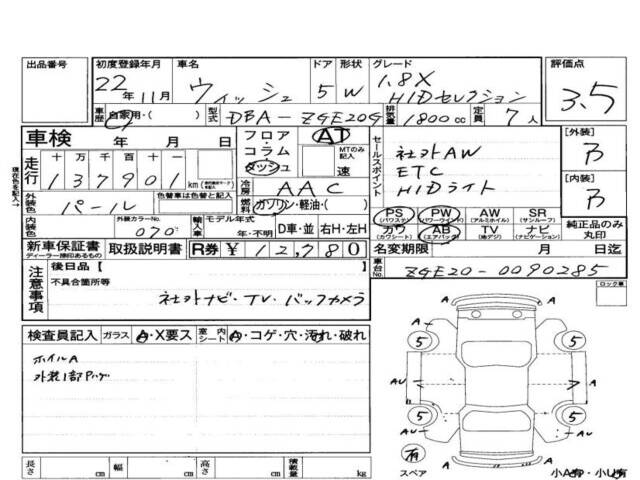 出品番号 初度登録年月 車名 ドア 形状 グレード 評価点
22年11月 ウィッシュ 5 W 1.8X 3.5
HIDセレクション
車歴 自家用・( ) 型式 DBA-ZGE20G 排気量 1800cc 定員 7人
車検 年 月 日 フロア・コラム・ダッシュ AT MTのみ記入 速 セールスポイント 社外AW [外装] 乃
走行 十万千百十一 137901km ETC
現在色を記入→ 冷房 AAC HIDライト [内装] 乃
外装色 パール 色替車は色替と記入 燃料 ガソリン・軽油・( )
PS(パワステ) PW(パワーウインドウ) AW(アルミホイル) SR(サンルーフ)
内装色 外装カラーNo. 070 輸入車 モデル年式 年・不明 D車・並 右H・左H カワ(カワシート) AB(エアバック) TV(地デジ) ナビ(ナビゲーション) 純正品のみ丸印
新車保証書 ディーラー捺印あるもの 取扱説明書 R券 ¥12,780 名変期限 月 日迄
注意事項 後日品[ ] 車台No. ZGE20-0090285
不具合箇所等 ロック車
社外ナビ・TV・バックカメラ
検査員記入 ガラス A・X要ス 室内シート A・コゲ・穴・汚れ・破れ
ホイルA
A A
5 5
AU A
5 5
AU AU
有 スペア A
長さ cm 幅 cm 高さ cm 積載量 kg
小A有・小U有